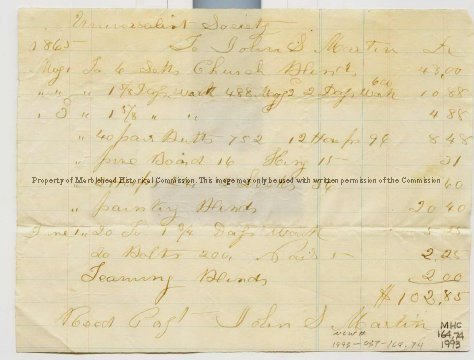 Universalist Society
1865 To John S. Martin Dr
May 1 To 6 Setts Church Blinds 43,00
" " 1 5/8 Days work 4 88 May 2 2 Days work 600 10 88
" 3 " 1 5/8 " " 4 88
" 40 pair Butts 7 52 12 Hasps 96 8 48
" pine Board 16 15 31
Property of Marblehead Historical Commission. This image may only be used with written permission of the Commission
60
" painting Blinds 20 40
June 1 " To 1 3/4 Days work
20 Bolts 200 2,25
Teaming Blinds 2 00
$102,85
Recd Payt John S. Martin
MHC
164,74
1993